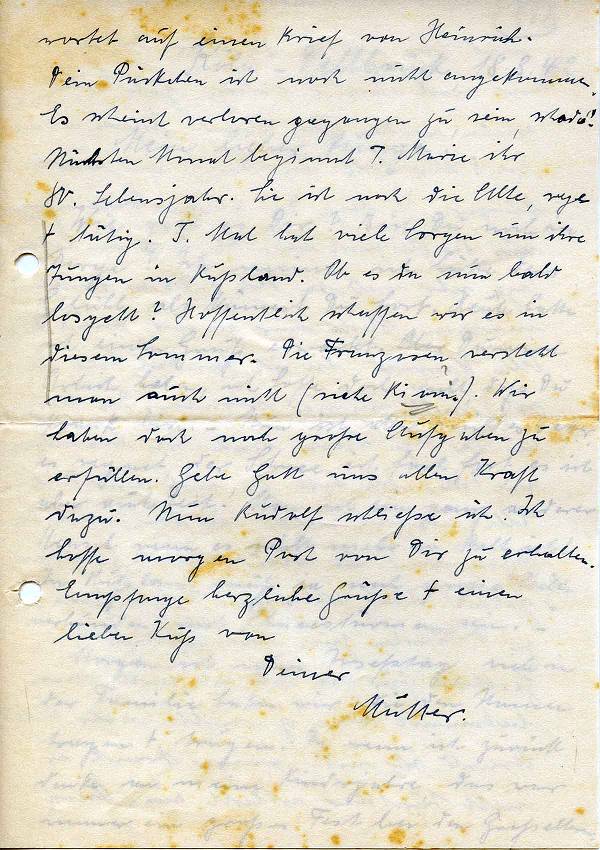 wartet auf einen Brief von Heinrich.
Dein Päckchen ist noch nicht angekommen.
Es scheint verloren gegangen zu sein, schade!
Nächsten Monat beginnt T. Marie ihr
80. Lebensjahr. Sie ist noch die Alte, rege
+ tätig. T. Mal hat viele Sorgen um ihre
Jungen in Rußland. Ob es da nun bald
losgeht? Hoffentlich schaffen wir es in
diesem Sommer. Die Franzosen versteht
man auch nicht (siehe
haben doch noch große Aufgaben zu
erfüllen. Gebe Gott uns allen Kraft
dazu. Nun Rudolf schließe ich. Ich
hoffe morgen Post von Dir zu erhalten.
Empfange herzliche Grüße + einen
lieben Kuß von
Deiner
Mutter.